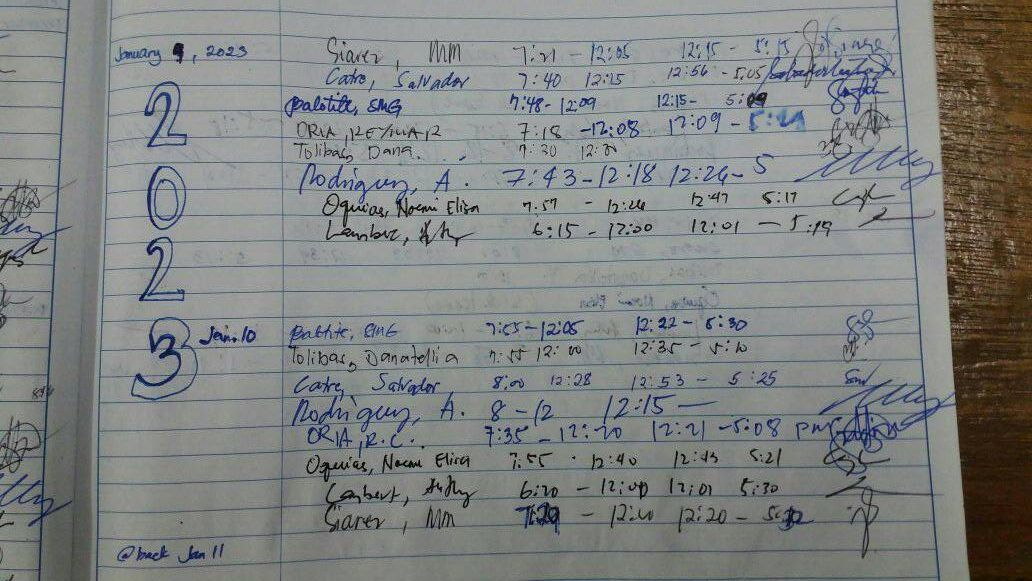 January 9, 2023
Siarez, MM 7:21 - 12:05 12:15 - 5:15
Catre, Salvador 7:40 12:15 12:56 - 5:05
Baltite, SMG 7:48 - 12:09 12:15 - 5:09
ORIA, 7:18 - 12:08 12:09 -
Tolibas, Dana 7:30 12:00
Rodriguez, A. 7:43 - 12:18 12:26 - 5
Oquias, Noemi Eliza 7:57 - 12:26 12:47 5:17
Lambert, 6:15 - 12:00 12:01 - 5:19
2
0
2
3
Jan. 10 Baltite, SMG 7:55 - 12:05 12:22 - 5:30
Tolibas, Danatellia 7:55 12:00 12:35 - 5:10
Catre, Salvador 8:00 12:28 12:53 - 5:25
Rodriguez, A. 8 - 12 12:15 -
ORIA, R.C. 7:35 - 12:20 12:21 - 5:08 PM
Oquias, Noemi Eliza 7:55 - 12:40 12:43 5:21
Lambert, 6:20 - 12:00 12:01 5:30
Siarez, MM - 12:20 -
@back Jan 11